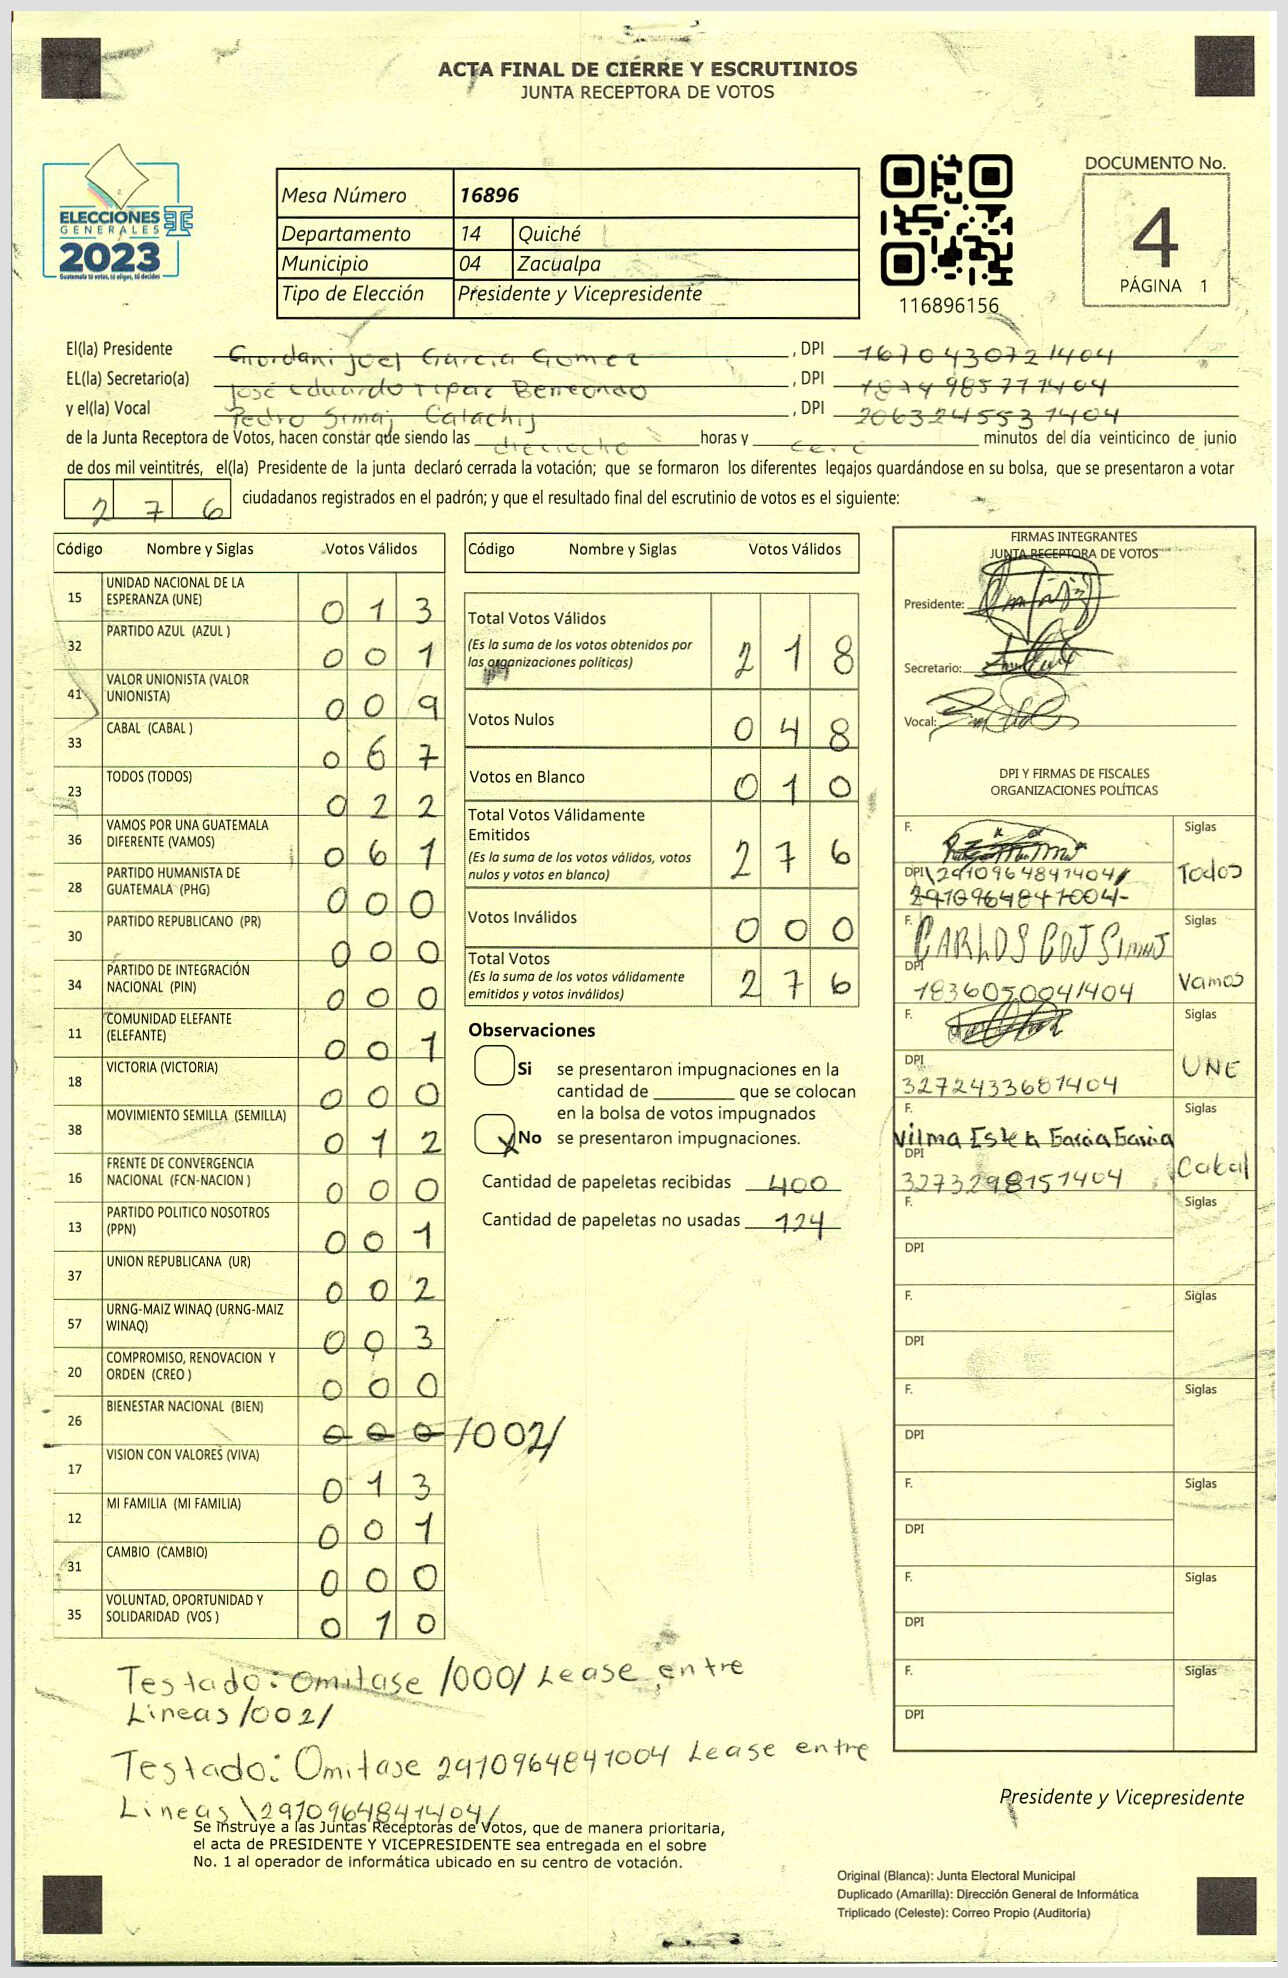 ACTA FINAL DE CIERRE Y ESCRUTINIOS
JUNTA RECEPTORA DE VOTOS
ELECCIONES
GENERALES
2023
Guatemala tú votas, tú eliges, tú decides
Mesa Número 16896
Departamento 14 Quiché
Municipio 04 Zacualpa
Tipo de Elección Presidente y Vicepresidente
116896156
DOCUMENTO No.
4
PÁGINA 1
El(la) Presidente Giordani Joel Garcia Gomez , DPI 1670430721404
EL(la) Secretario(a) José Eduardo Tipaz , DPI 1874985771404
y el(la) Vocal Pedro Simaj Calachij , DPI 2063245531404
de la Junta Receptora de Votos, hacen constar que siendo las dieciocho horas y cero minutos del día veinticinco de junio
de dos mil veintitrés, el(la) Presidente de la junta declaró cerrada la votación; que se formaron los diferentes legajos guardándose en su bolsa, que se presentaron a votar
276 ciudadanos registrados en el padrón; y que el resultado final del escrutinio de votos es el siguiente:
Código Nombre y Siglas Votos Válidos
15 UNIDAD NACIONAL DE LA
ESPERANZA (UNE) 013
32 PARTIDO AZUL (AZUL ) 001
41 VALOR UNIONISTA (VALOR
UNIONISTA) 009
33 CABAL (CABAL ) 067
23 TODOS (TODOS) 022
36 VAMOS POR UNA GUATEMALA
DIFERENTE (VAMOS) 061
28 PARTIDO HUMANISTA DE
GUATEMALA (PHG) 000
30 PARTIDO REPUBLICANO (PR) 000
34 PARTIDO DE INTEGRACIÓN
NACIONAL (PIN) 000
11 COMUNIDAD ELEFANTE
(ELEFANTE) 001
18 VICTORIA (VICTORIA) 000
38 MOVIMIENTO SEMILLA (SEMILLA) 012
16 FRENTE DE CONVERGENCIA
NACIONAL (FCN-NACION ) 000
13 PARTIDO POLITICO NOSOTROS
(PPN) 001
37 UNION REPUBLICANA (UR) 002
57 URNG-MAIZ WINAQ (URNG-MAIZ
WINAQ) 003
20 COMPROMISO, RENOVACION Y
ORDEN (CREO ) 000
26 BIENESTAR NACIONAL (BIEN) 000 /002/
17 VISION CON VALORES (VIVA) 013
12 MI FAMILIA (MI FAMILIA) 001
31 CAMBIO (CAMBIO) 000
35 VOLUNTAD, OPORTUNIDAD Y
SOLIDARIDAD (VOS ) 010
Código Nombre y Siglas Votos Válidos
Total Votos Válidos
(Es la suma de los votos obtenidos por
las organizaciones políticas) 218
Votos Nulos 048
Votos en Blanco 010
Total Votos Válidamente
Emitidos
(Es la suma de los votos válidos, votos
nulos y votos en blanco) 276
Votos Inválidos 000
Total Votos
(Es la suma de los votos válidamente
emitidos y votos inválidos) 276
Observaciones
Si se presentaron impugnaciones en la
cantidad de ________ que se colocan
en la bolsa de votos impugnados
X No se presentaron impugnaciones.
Cantidad de papeletas recibidas 400
Cantidad de papeletas no usadas 124
FIRMAS INTEGRANTES
JUNTA RECEPTORA DE VOTOS
Presidente:
Secretario:
Vocal:
DPI Y FIRMAS DE FISCALES
ORGANIZACIONES POLÍTICAS
F. Siglas
DPI \2910964841404/ Todos
2910964841004
F. CARLOS COJ Simaj Siglas
DPI 1836050041404 Vamos
F. Siglas
DPI 3272433681404 UNE
F. Vilma Estela Garcia Garcia Siglas
DPI 3273298151404 Cabal
F. Siglas
DPI
F. Siglas
DPI
F. Siglas
DPI
F. Siglas
DPI
F. Siglas
DPI
F. Siglas
DPI
Testado: Omitase /000/ Lease entre
Lineas /002/
Testado: Omitase 2910964841004 Lease entre
Lineas \2910964841404/
Se instruye a las Juntas Receptoras de Votos, que de manera prioritaria,
el acta de PRESIDENTE Y VICEPRESIDENTE sea entregada en el sobre
No. 1 al operador de informática ubicado en su centro de votación.
Presidente y Vicepresidente
Original (Blanca): Junta Electoral Municipal
Duplicado (Amarilla): Dirección General de Informática
Triplicado (Celeste): Correo Propio (Auditoría)